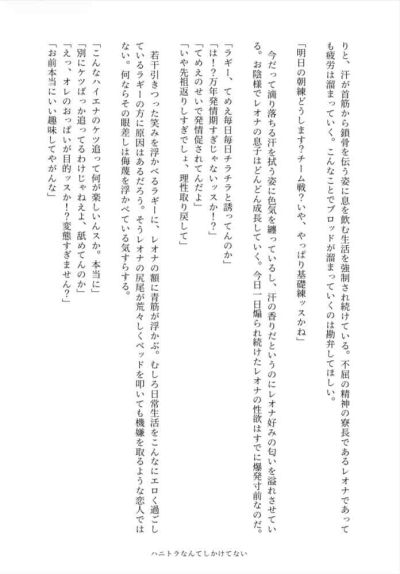 りと、汗が首筋から鎖骨を伝う姿に息を飲む生活を強制され続けている。不屈の精神の寮長であるレオナであって
も疲労は溜まっていく。こんなことでブロッドが溜まっていくのは勘弁してほしい。
「明日の朝練どうします？チーム戦？いや、やっぱり基礎練ッスかね」
今だって滴り落ちる汗を拭う姿に色気を纏っているし、汗の香りだというのにレオナ好みの匂いを溢れさせてい
る。お陰様でレオナの息子はどんどん成長していく。今日一日煽られ続けたレオナの性欲はすでに爆発寸前なのだ。
「ラギー、てめえ毎日毎日チラチラと誘ってんのか」
「は！？万年発情期すぎじゃないッスか！？」
「てめえのせいで発情促されてんだよ」
「いや先祖返りしすぎでしょ、理性取り戻して」
若干引きつった笑みを浮かべるラギーに、レオナの額に青筋が浮かぶ。むしろ日常生活をこんなにエロく過ごし
ているラギーの方に原因はあるだろう。そうレオナの尻尾が荒々しくベッドを叩いても機嫌を取るような恋人では
ない。何ならその眼差しは侮蔑を浮かべている気すらする。
「こんなハイエナのケツ追って何が楽しいんスか。本当に」
「別にケツばっか追ってるわけじゃねえよ、舐めてんのか」
「えっ、オレのおっぱいが目的ッスか！？変態すぎません？」
「お前本当にいい趣味してやがんな」
ハニトラなんてしかけてない